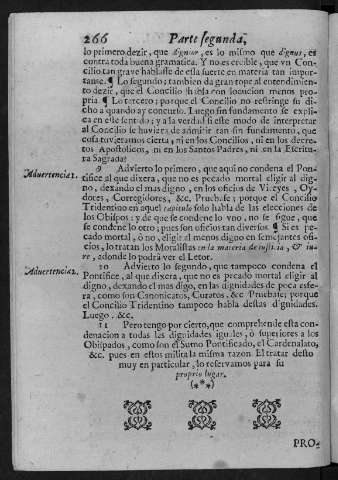 266 Parte segunda,
lo primero dezir, que dignior, es lo mismo que dignus, es
contra toda buena gramatica. Y no es creible, que vn Con-
cilio tan grave hablasse de esta suerte en materia tan impor-
tante. ¶ Lo segundo; tambien da gran tope al entendimien-
to dezir, que el Concilio habla con locucion menos pro-
pria. ¶ Lo tercero; porque el Concilio no restringe su di-
cho a quando ay concurso. Luego sin fundamento se expli-
ca en este sentido; y a la verdad si este modo de interpretar
al Concilio se huviera de admitir tan sin fundamento, que
cosa tuvieramos cierta, ni en los Concilios, ni en los decre-
tos Apostolicos, ni en los Santos Padres, ni en la Escritu-
ra Sagrada?
Advertencia 1. 9 Advierto lo primero, que aqui no condena el Pon-
tifice al que dixera, que no es pecado mortal eligir al dig-
no, dexando el mas digno, en los oficios de Virreyes, Oy-
dores, Corregidores, &c. Pruebase; porque el Concilio
Tridentino en aquel capitulo solo habla de las elecciones de
los Obispos: y de que se condene lo vno, no se sigue, que
se condene lo otro; pues son oficios tan diversos. ¶ Si es pe-
cado mortal, ò no, eligir al menos digno en semejantes ofi-
cios, lo tratan los Moralistas en la materia de iustitia, & iu-
re, adonde lo podrà ver el Letor.
Advertencia 2. 10 Advierto lo segundo, que tampoco condena el
Pontifice, al que dixera, que no es pecado mortal eligir al
digno, dexando el mas digo, en las dignidades de poca esfe-
ra, como son Canonicatos, Curatos, &c. Pruebase; porque
el Concilio Tridentino tampoco habla destas dignidades.
Luego, &c.
11 Pero tengo por cierto, que comprehende esta con-
denacion a todas las dignidades iguales, ò superiores a los
Obispados, como son el Sumo Pontificado, el Cardenalato,
&c. pues en estos milita la misma razon. El tratar desto
muy en particular, lo reservamos para su
proprio lugar.
(***)
PRO-